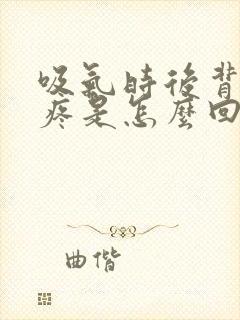 吸氣時後背
疼是怎麼回
曲偕